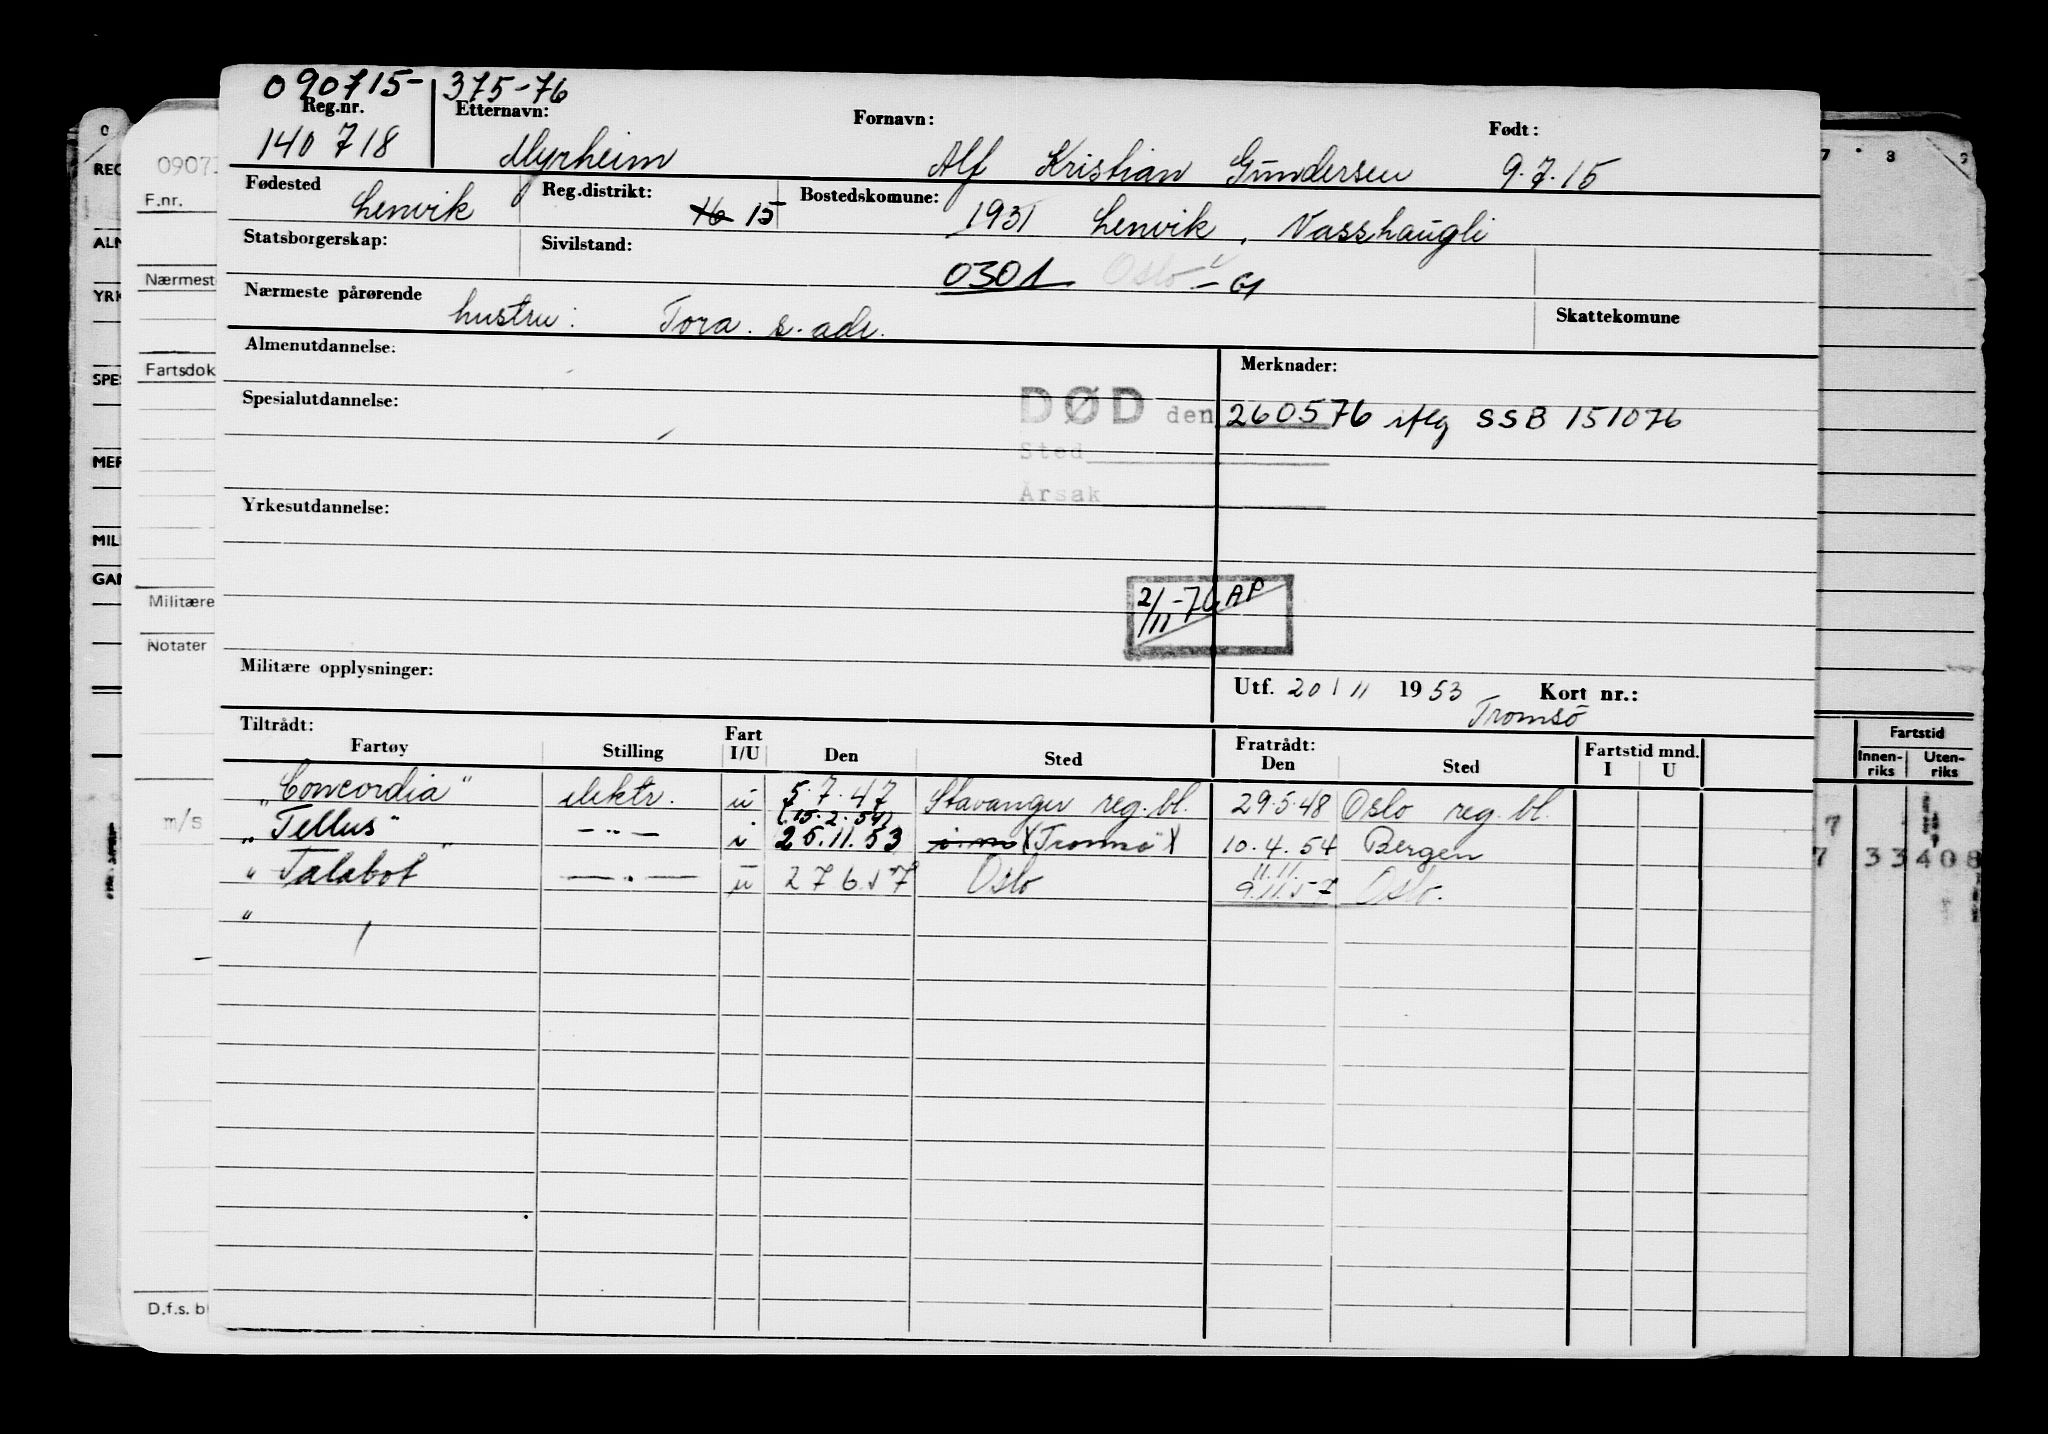 090715- 375-76
Reg.nr. Etternavn: Fornavn: Født:
140718 Myrheim Alf Kristian Gundersen 9.7.15
Fødested Reg.distrikt: Bostedskomune:
Lenvik 16 15 1931 Lenvik, Vasshaugli
Statsborgerskap: Sivilstand:
0301 Oslo
Nærmeste pårørende Skattekomune
hustru: Tora. s. adr.
Almenutdannelse: Merknader:
Spesialutdannelse: DØD den 260576 iflg SSB 151076
Sted
Årsak
Yrkesutdannelse:
2/11-76 AP
Militære opplysninger:
Utf. 20/11 1953 Kort nr.:
Tromsö
Tiltrådt: Fratrådt:
Fartøy Stilling Fart I/U Den Sted Den Sted Fartstid mnd. I U
"Concordia" elektr. u 5.7.47 Stavanger reg.bl. 29.5.48 Oslo reg.bl.
(15.2.54)
"Tellus" -"- i 25.11.53 (Tromsö) 10.4.54 Bergen
11.11.
"Talabot" -"- u 27 6.57 Oslo 9.11.57 Oslo.
"
F.nr.
Nærmest
Fartsdok
Militære
Notater
m/s
D.f.s. b
0
REG
ALM
YRK
SPES
MER
MIL
GAN
7 8 9
Fartstid
Innen-riks Uten-riks
7
7 33 408